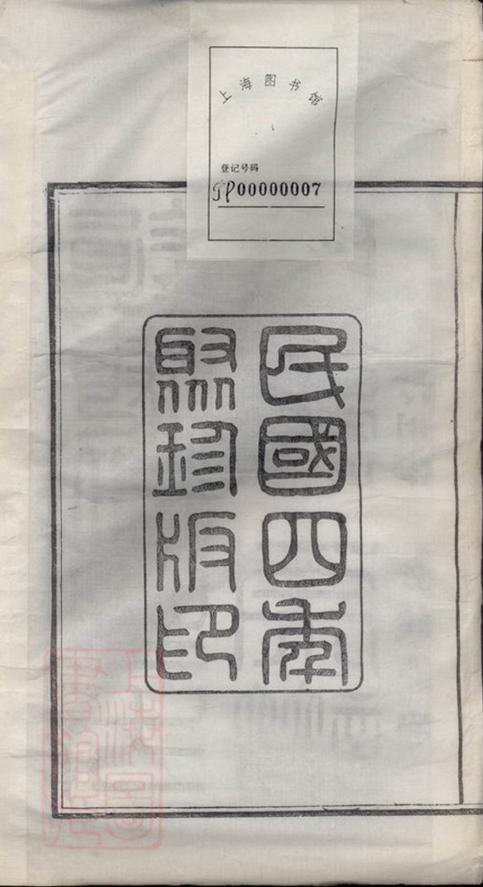 上海图书馆
登记号码
GP00000007
民國四年
聚珍版印